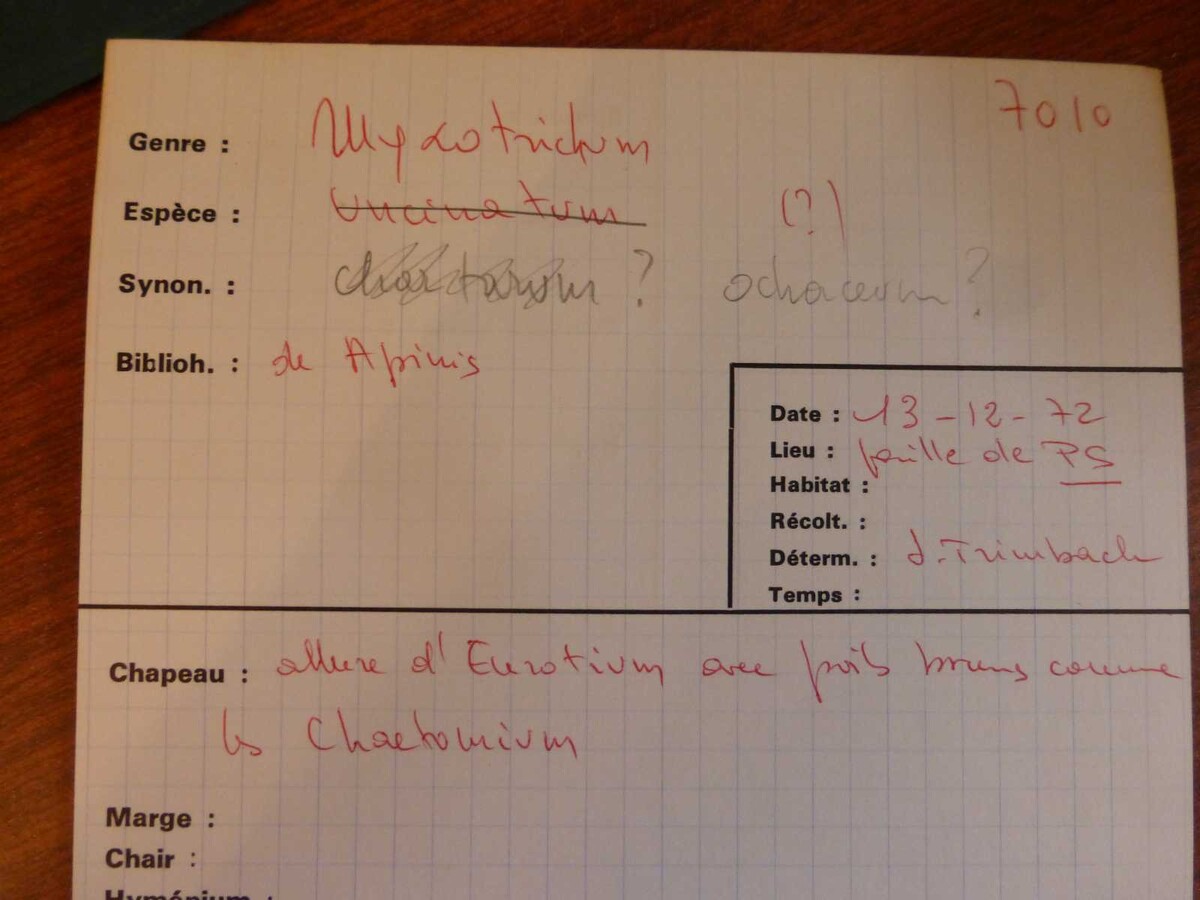 7010
Genre : Myxotrichum
Espèce : Uncinatum (?)
Synon. : chartarum ? ochraceum ?
Biblioh. : de Apinis
Date : 13-12-72
Lieu : paille de PS
Habitat :
Récolt. :
Déterm. : J. Trimbach
Temps :
Chapeau : allure d'Eurotium avec poils bruns comme
les Chaetomium
Marge :
Chair :
Hyménium :